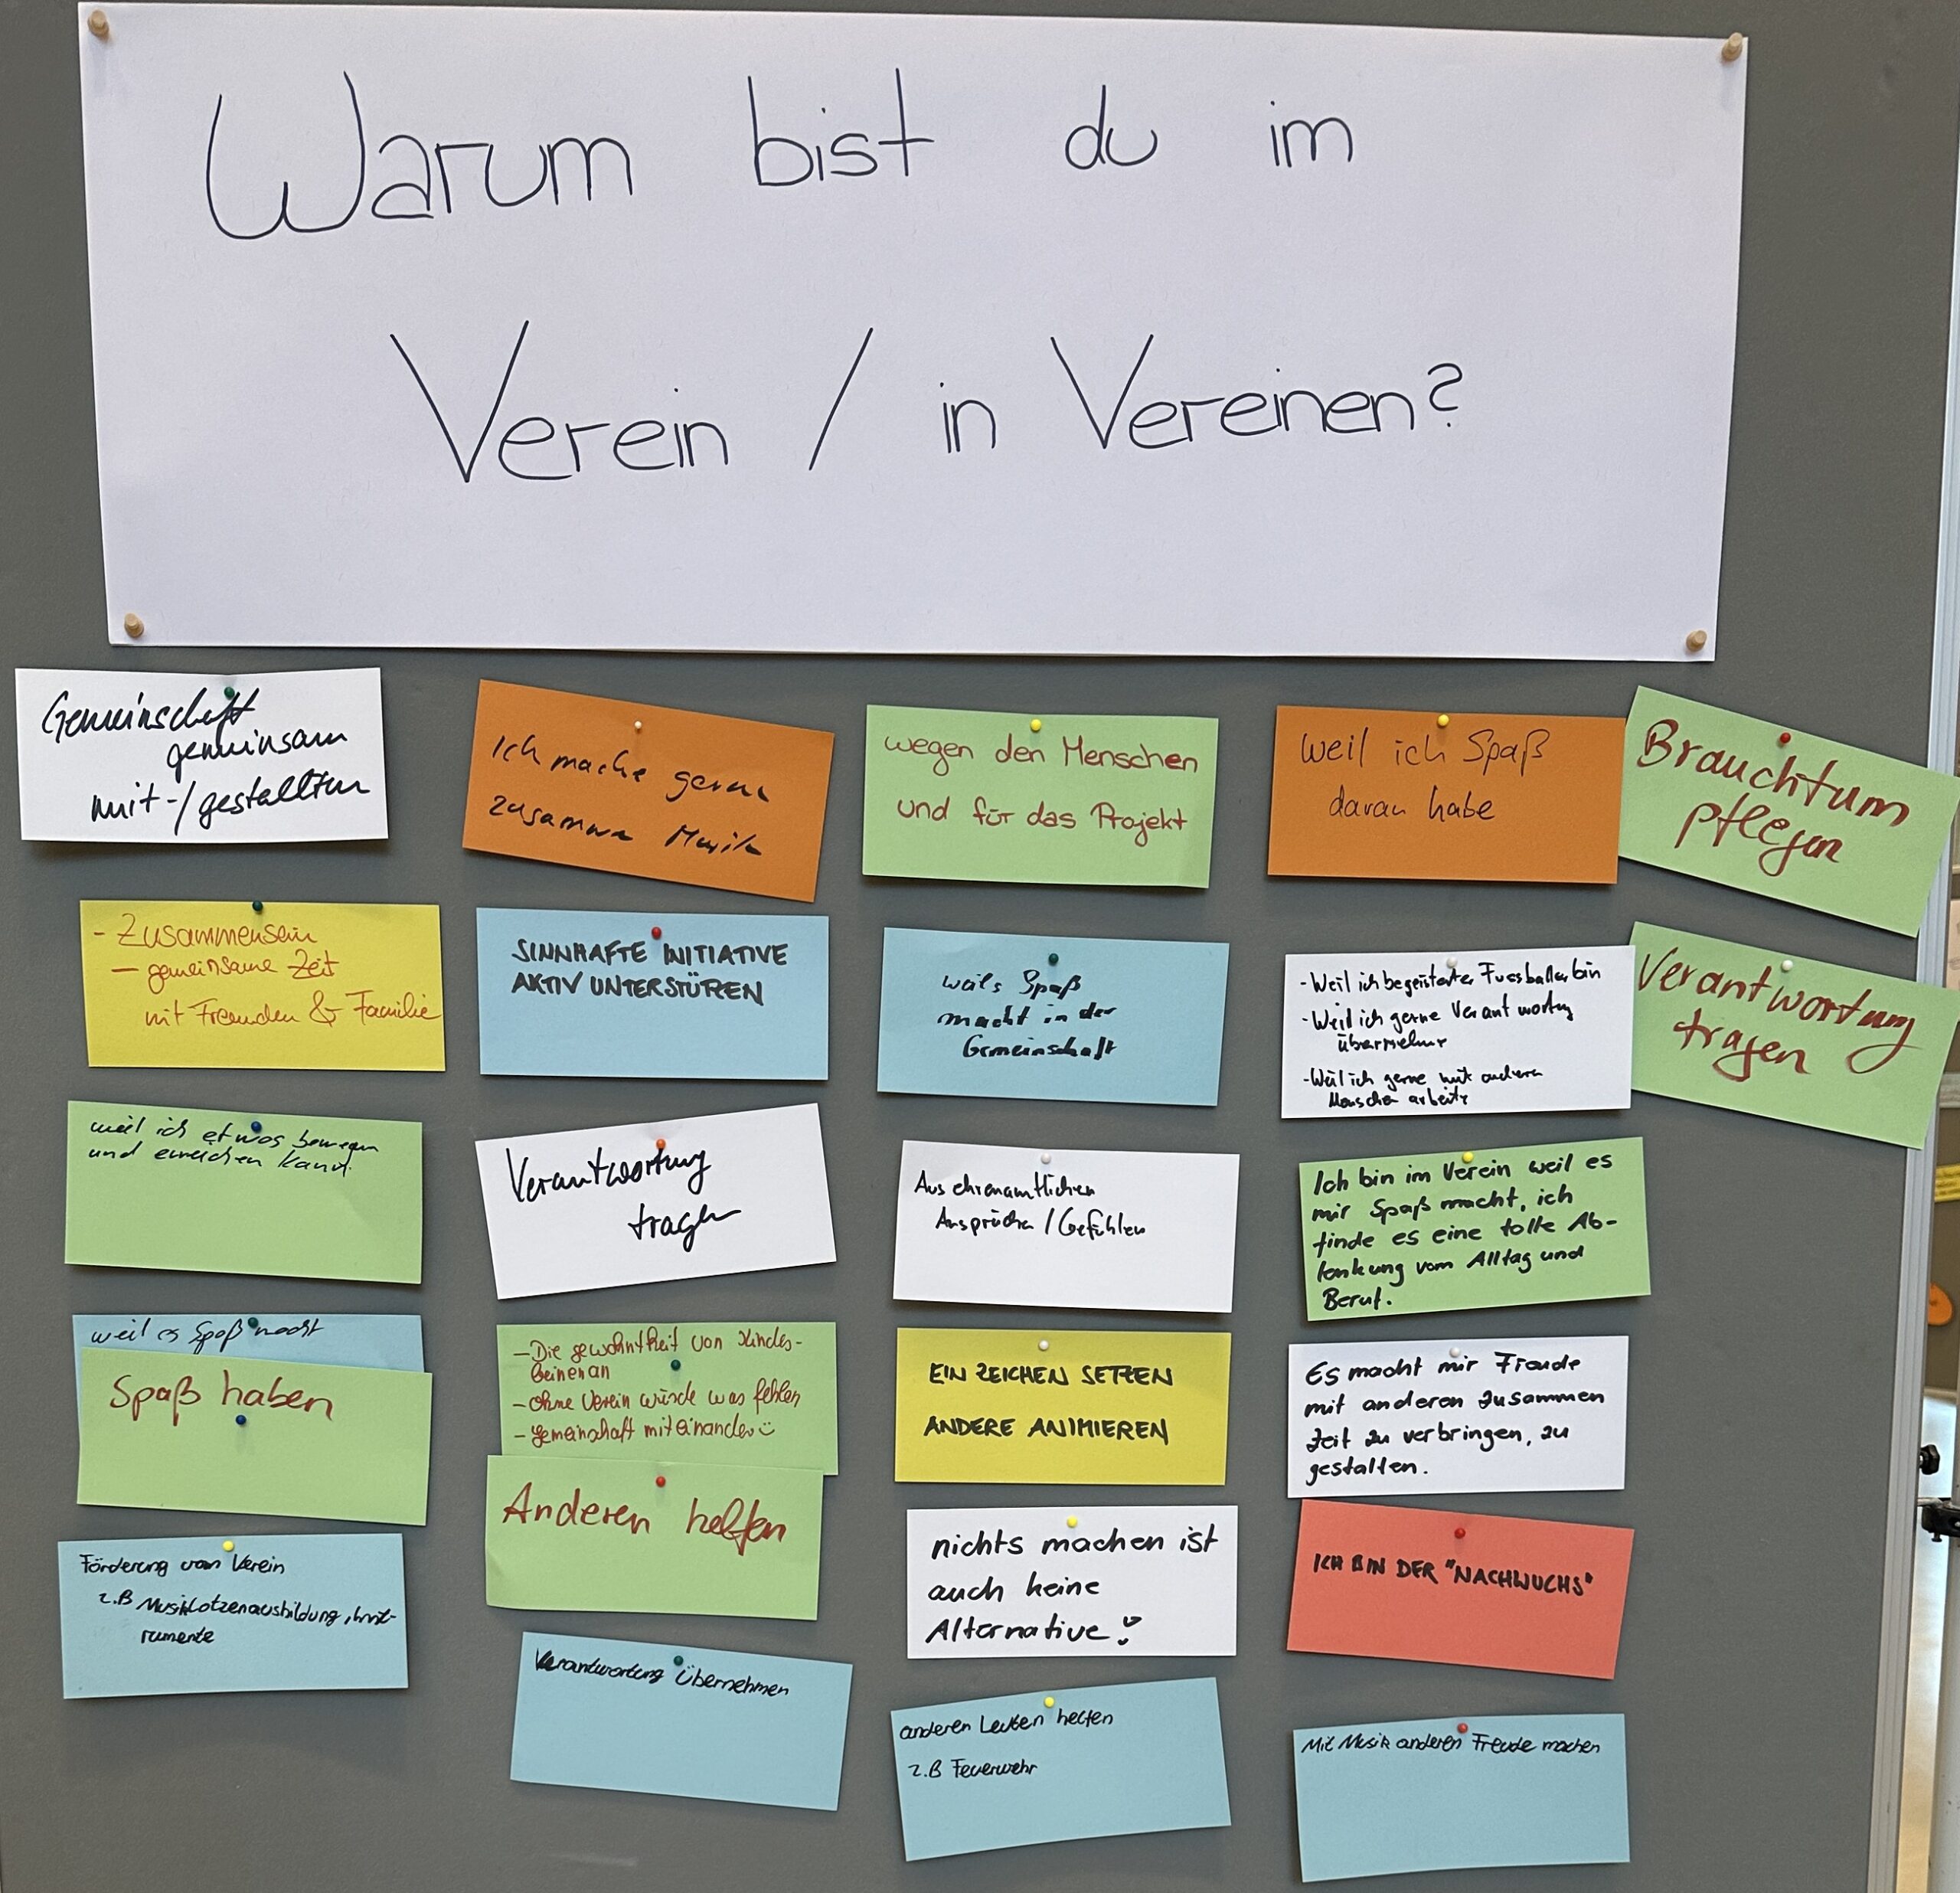 Warum bist du im
Verein / in Vereinen?
Gemeinschaft
gemeinsam
mit-/gestalten
Ich mache gerne
zusammen Musik
wegen den Menschen
und für das Projekt
weil ich Spaß
daran habe
Brauchtum
pflegen
- Zusammensein
- gemeinsame Zeit
mit Freunden & Familie
SINNHAFTE INITIATIVE
AKTIV UNTERSTÜREN
weils Spaß
macht in der
Gemeinschaft
- Weil ich begeisterter Fussballer bin
- Weil ich gerne Verantwortung
übernehme
- Weil ich gerne mit anderen
Menschen arbeite
Verantwortung
tragen
weil ich etwas bewegen
und erreichen kann.
Verantwortung
tragen
Aus ehrenamtlichen
Ansprüchen / Gefühlen
Ich bin im Verein weil es
mir Spaß macht, ich
finde es eine tolle Ab-
lenkung vom Alltag und
Beruf.
weil es Spaß macht
Spaß haben
- Die gewohntheit von Kindes-
beinen an
- ohne Verein würde was fehlen
- gemeinschaft miteinander☺
Anderen helfen
EIN ZEICHEN SETZEN
ANDERE ANIMIEREN
Es macht mir Freude
mit anderen zusammen
Zeit zu verbringen, zu
gestalten.
Förderung vom Verein
z.B Musiklotzenausbildung, Inst-
rumente
nichts machen ist
auch keine
Alternative!
ICH BIN DER "NACHWUCHS"
Verantwortung Übernehmen
anderen Leuten helfen
z.B Feuerwehr
Mit Musik anderen Freude machen